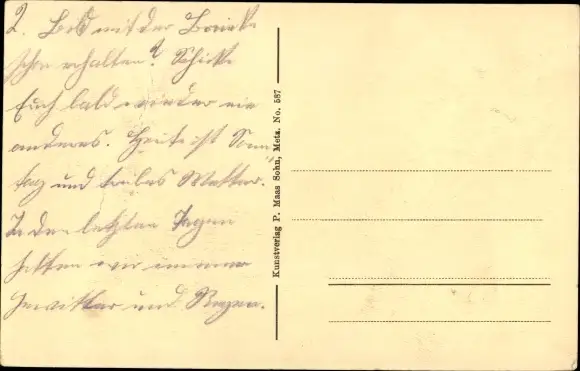 2. Bild mit der Brücke
schon erhalten? Schicke
Euch bald wieder ein
anderes. Heute ist Sonn-
tag und trübes Wetter.
In den letzten Tagen
hatten wir immer
Gewitter und Regen.
Kunstverlag P. Maas Sohn, Metz. No. 587